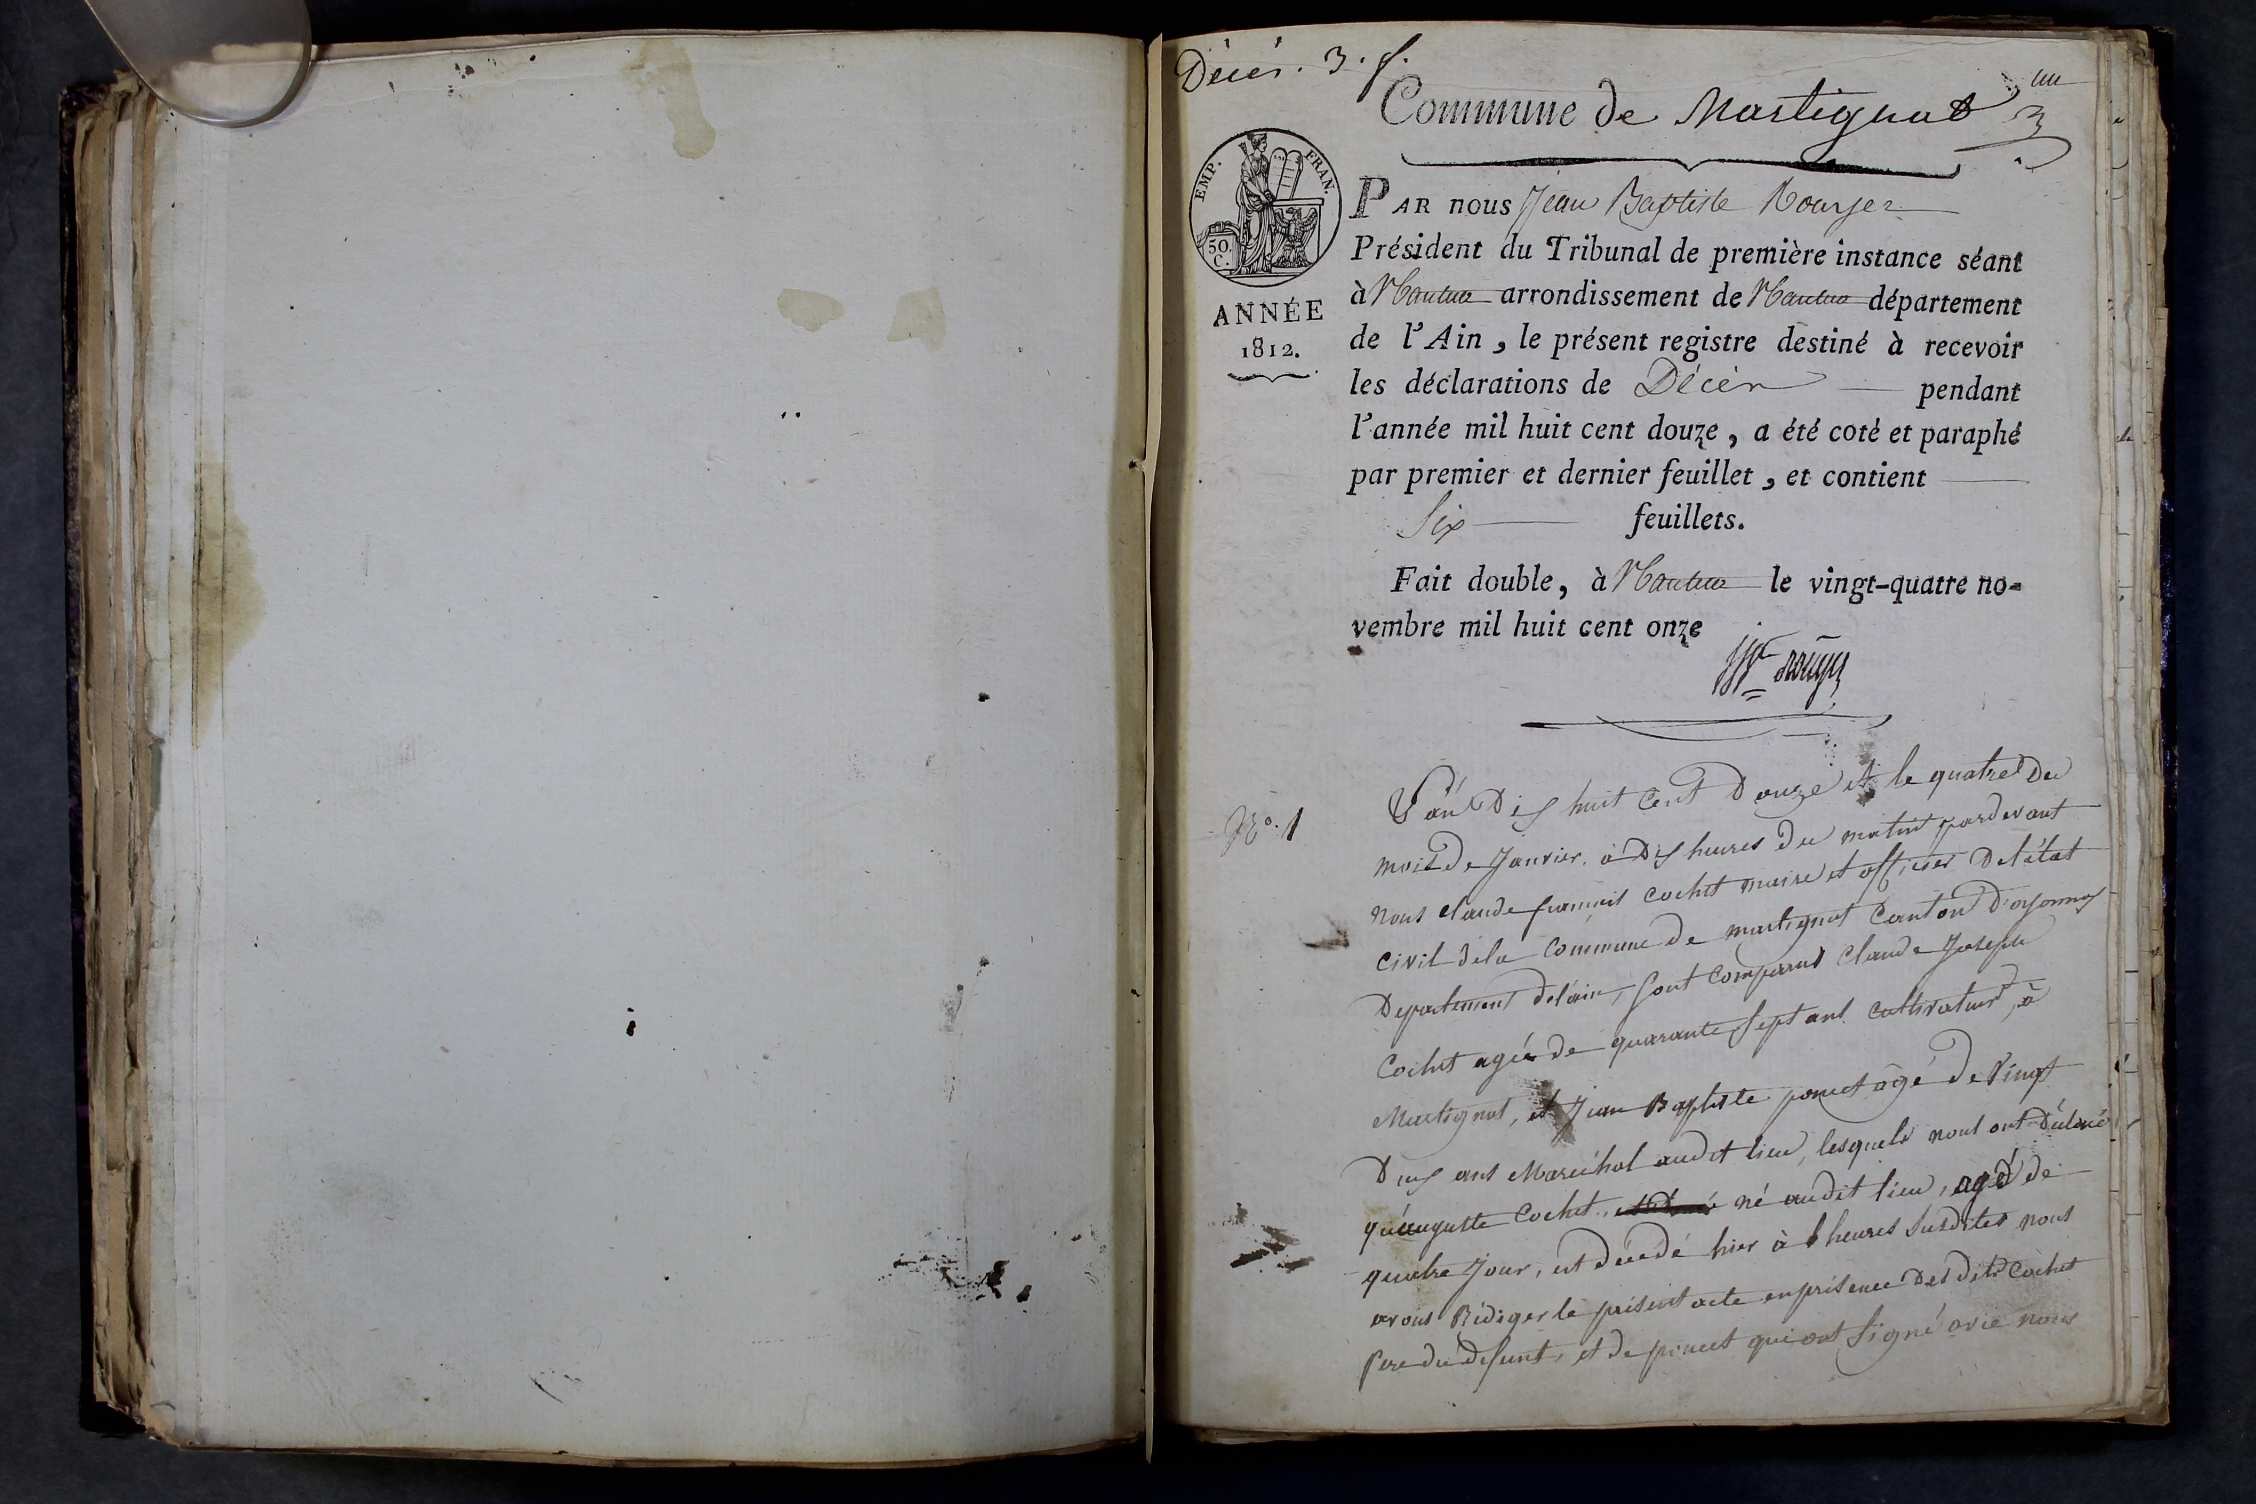 Décés. 3. f.
un
Commune de Martignat
EMP. FRAN.
50.
C.
ANNÉE
1812.
PAR nous Jean Baptiste Rouyer
Président du Tribunal de première instance séant
à Nantua arrondissement de Nantua département
de l'Ain, le présent registre destiné à recevoir
les déclarations de Décès pendant
l'année mil huit cent douze, a été coté et paraphé
par premier et dernier feuillet, et contient
Six feuillets.
Fait double, à Nantua le vingt-quatre no-
vembre mil huit cent onze
N°. 1
L'an Dix huit Cent Douze et le quatre du
mois de Janvier, à Dix heures du matin pardevant
nous Claude francois Cochet maire et officier Delétat
civil Dela Commune de martignat Canton D'oyonnax
Departement delain, sont comparus Claude Joseph
Cochet agée de quarante sept ans cultivateur, à
Martignat, et Jean Baptiste poncet âgé de vingt
Deux ans Maréchal audit lieu, lesquels nous ont Déclaré
qu'auguste Cochet, né audit lieu, agé de
quatre Jour, est decédé hier à heures susdites nous
avons Rédiger le présent acte en présence Des dits Cochet
Pere du défunt, et de poncet qui ont signé avec nous